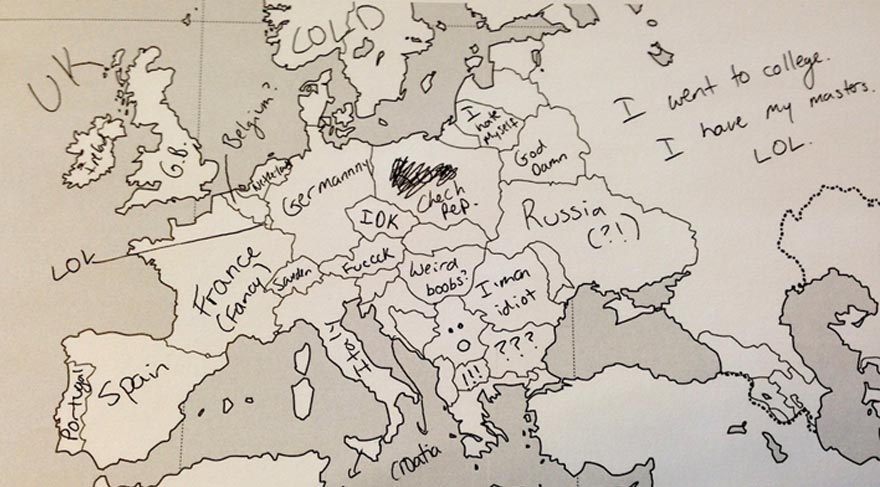 COLD
UK
I went to college.
I have my masters.
LOL.
Belgium?
I hate
myself
Ireland
G.B.
Netherland
Germannny
God
Damn
Chech
Rep.
IDK
Russia
(?!)
LOL
France
(Fancy)
Sweden
Fuccck
Weird
boobs?
I'm an
idiot
Italy
???
!!!
Spain
Portugal
Croatia